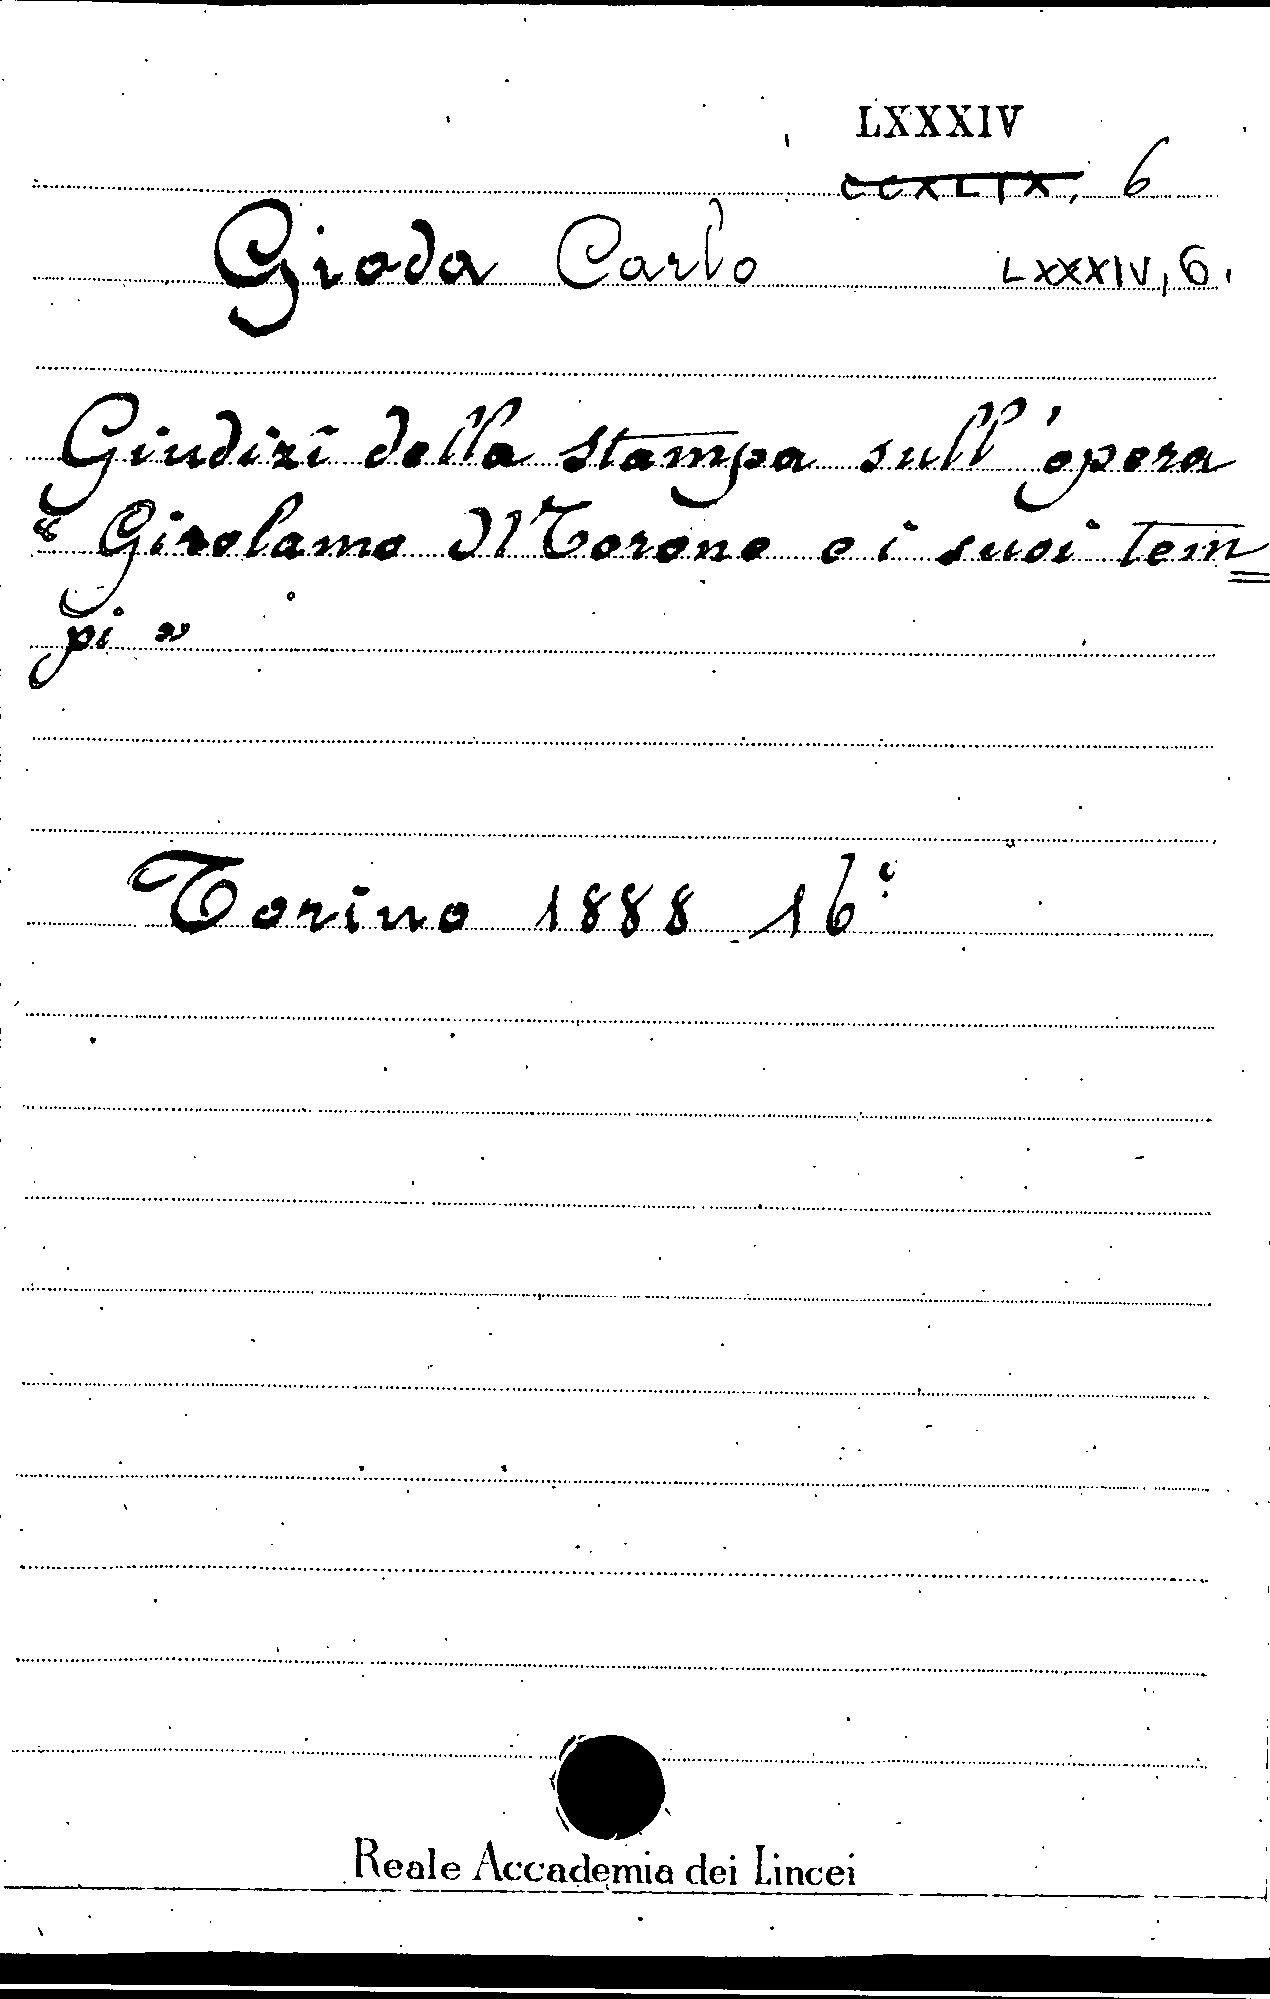 LXXXIV
CCXLIX, 6
Gioda Carlo LXXXIV, 6.
Giudizî della stampa sull'opera
“ Girolamo Morone e i suoi tem=
pi ”
Torino 1888 16°
Reale Accademia dei Lincei